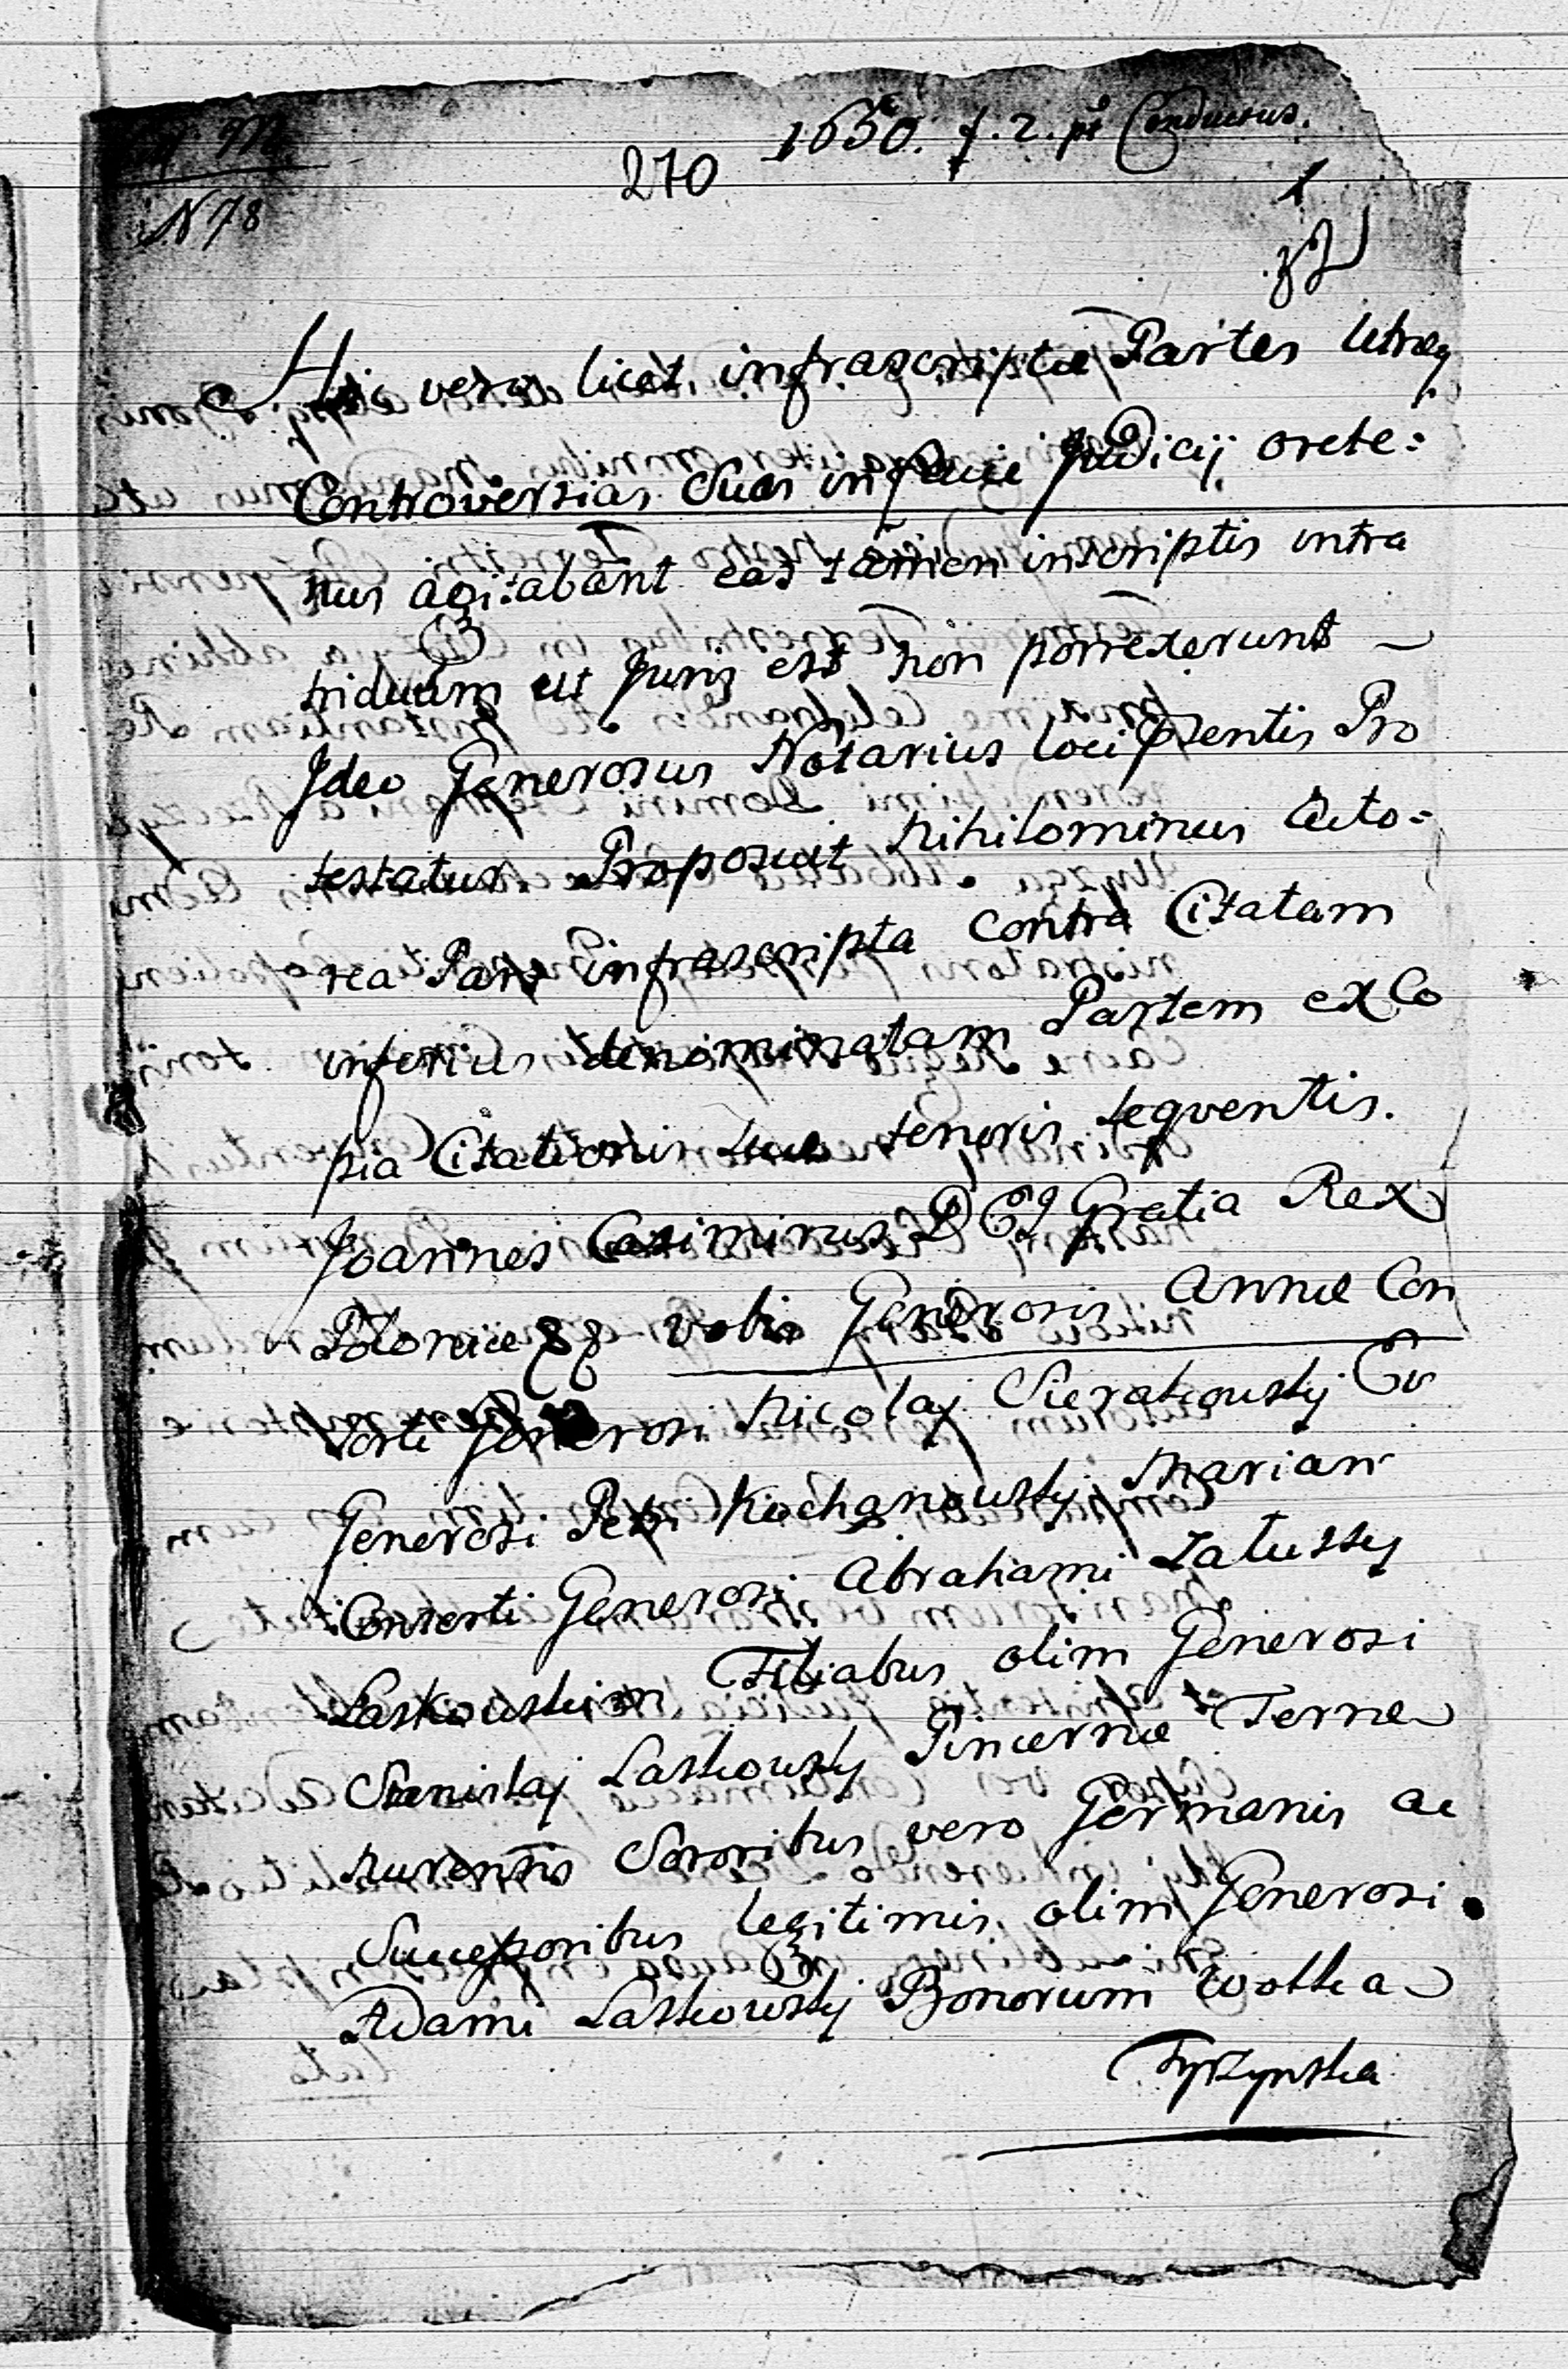 1650. f. 2. pt Conductus.
270
N 78
1
Hic vero licet infrascriptæ Partes utræq
Controversias Suas in facie Judicij orete:
nus agitabant eas tamen inscriptis intra
triduum ut Juris est non porrexerunt –
Ideo Generosus Notarius loci Psentis Pro
testatur. Proposuit nihilominus Acto:
rea Pars infrascripta contra Citatam
inferius denominatam Partem ex Co
pia Citationis sub tenoris sequentis.
Joannes Casimirus D Gratia Rex
Poloniæ vobis Generosis Annæ Con
sorti Generosi Nicolaj Sierakowsky Ev
Generosi Petri Kochanowsky Mariann
Consorti Generosi Abrahami Załussky
Laskowskim Filiabus olim Generosi
Stanislaj Laskowsky Pincernæ Terræ
nurensis Sororibus vero Germanis ac
Successoribus legitimis olim Generosi
Adami Laskowsky Bonorum Wolka
Tyrzynska